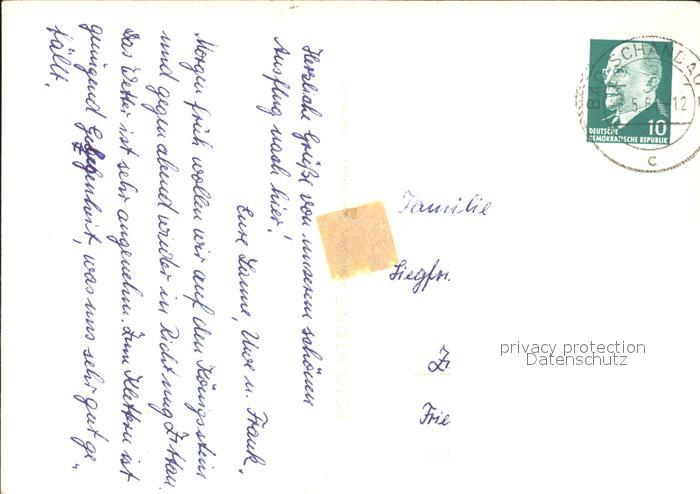 Herzliche Grüße von unserem schönen
Ausflug nach hier!
Eure Hanne, Uwe u. Frank.
Morgen früh wollen wir auf den Königstein
und gegen abend wieder in Richtung Zittau.
Das Wetter ist sehr angenehm. Zum Klettern ist
genügend Gelegenheit, was uns sehr gut ge„
fällt.
BAD SCHANDAU
5.6
12
c
10
DEUTSCHE
DEMOKRATISCHE REPUBLIK
Familie
Siegfr.
Zi
Frie
privacy protection
Datenschutz